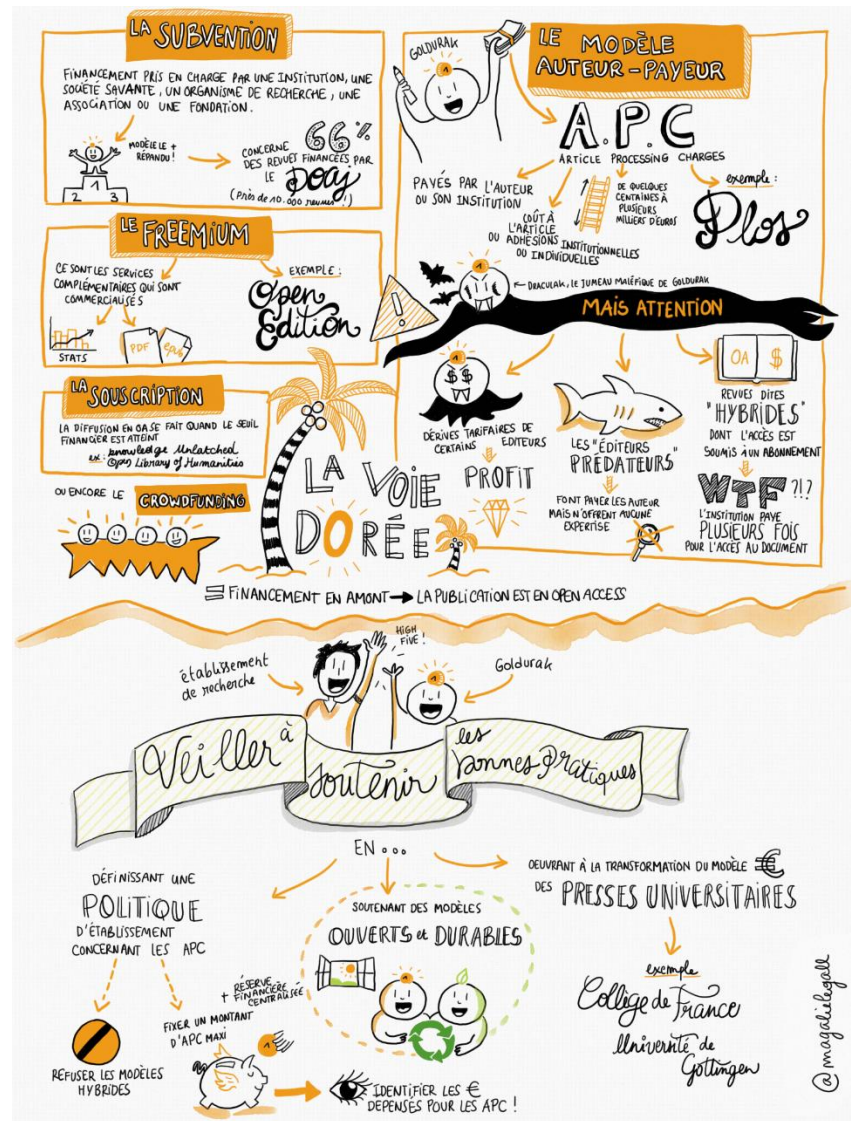 LA SUBVENTION
FINANCEMENT PRIS EN CHARGE PAR UNE INSTITUTION, UNE
SOCIÉTÉ SAVANTE, UN ORGANISME DE RECHERCHE, UNE
ASSOCIATION OU UNE FONDATION.
MODÈLE LE +
RÉPANDU !
2 1 3
CONCERNE 66%
DES REVUES FINANCÉES PAR
LE Doaj
(Près de 10.000 revues !)
LE FREEMIUM
CE SONT LES SERVICES
COMPLÉMENTAIRES QUI SONT
COMMERCIALISÉS
STATS
PDF
epub
EXEMPLE :
Open
Edition
LA SOUSCRIPTION
LA DIFFUSION EN OA SE FAIT QUAND LE SEUIL
FINANCIER EST ATTEINT
ex : Knowledge Unlatched
Open Library of Humanities
OU ENCORE LE CROWDFUNDING
GOLDURAK
LE MODÈLE
AUTEUR-PAYEUR
A.P.C
ARTICLE PROCESSING CHARGES
PAYÉS PAR L'AUTEUR
OU SON INSTITUTION
COÛT À
L'ARTICLE
OU ADHÉSIONS INSTITUTIONNELLES
OU INDIVIDUELLES
DE QUELQUES
CENTAINES À
PLUSIEURS
MILLIERS D'EUROS
exemple :
Plos
DRACULAK, LE JUMEAU MALÉFIQUE DE GOLDURAK
!
MAIS ATTENTION
$ $
DÉRIVES TARIFAIRES DE
CERTAINS EDITEURS
PROFIT
LES "ÉDITEURS
PRÉDATEURS"
FONT PAYER LES AUTEUR
MAIS N'OFFRENT AUCUNE
EXPERTISE
OA $
REVUES DITES
"HYBRIDES"
DONT L'ACCÈS EST
SOUMIS À UN ABONNEMENT
WTF ?!?
L'INSTITUTION PAYE
PLUSIEURS FOIS
POUR L'ACCÈS AU DOCUMENT
LA VOIE
DORÉE
= FINANCEMENT EN AMONT → LA PUBLICATION EST EN OPEN ACCESS
HIGH
FIVE !
établissement
de recherche
Goldurak
Veiller à soutenir les bonnes pratiques
EN ...
DÉFINISSANT UNE
POLITIQUE
D'ÉTABLISSEMENT
CONCERNANT LES APC
REFUSER LES MODÈLES
HYBRIDES
FIXER UN MONTANT
D'APC MAXI
+ RÉSERVE
FINANCIÈRE
CENTRALISÉE
IDENTIFIER LES €
DÉPENSÉS POUR LES APC !
SOUTENANT DES MODÈLES
OUVERTS et DURABLES
OEUVRANT À LA TRANSFORMATION DU MODÈLE €
DES PRESSES UNIVERSITAIRES
exemple
Collège de France
Université de
Gottingen
@magalielegall